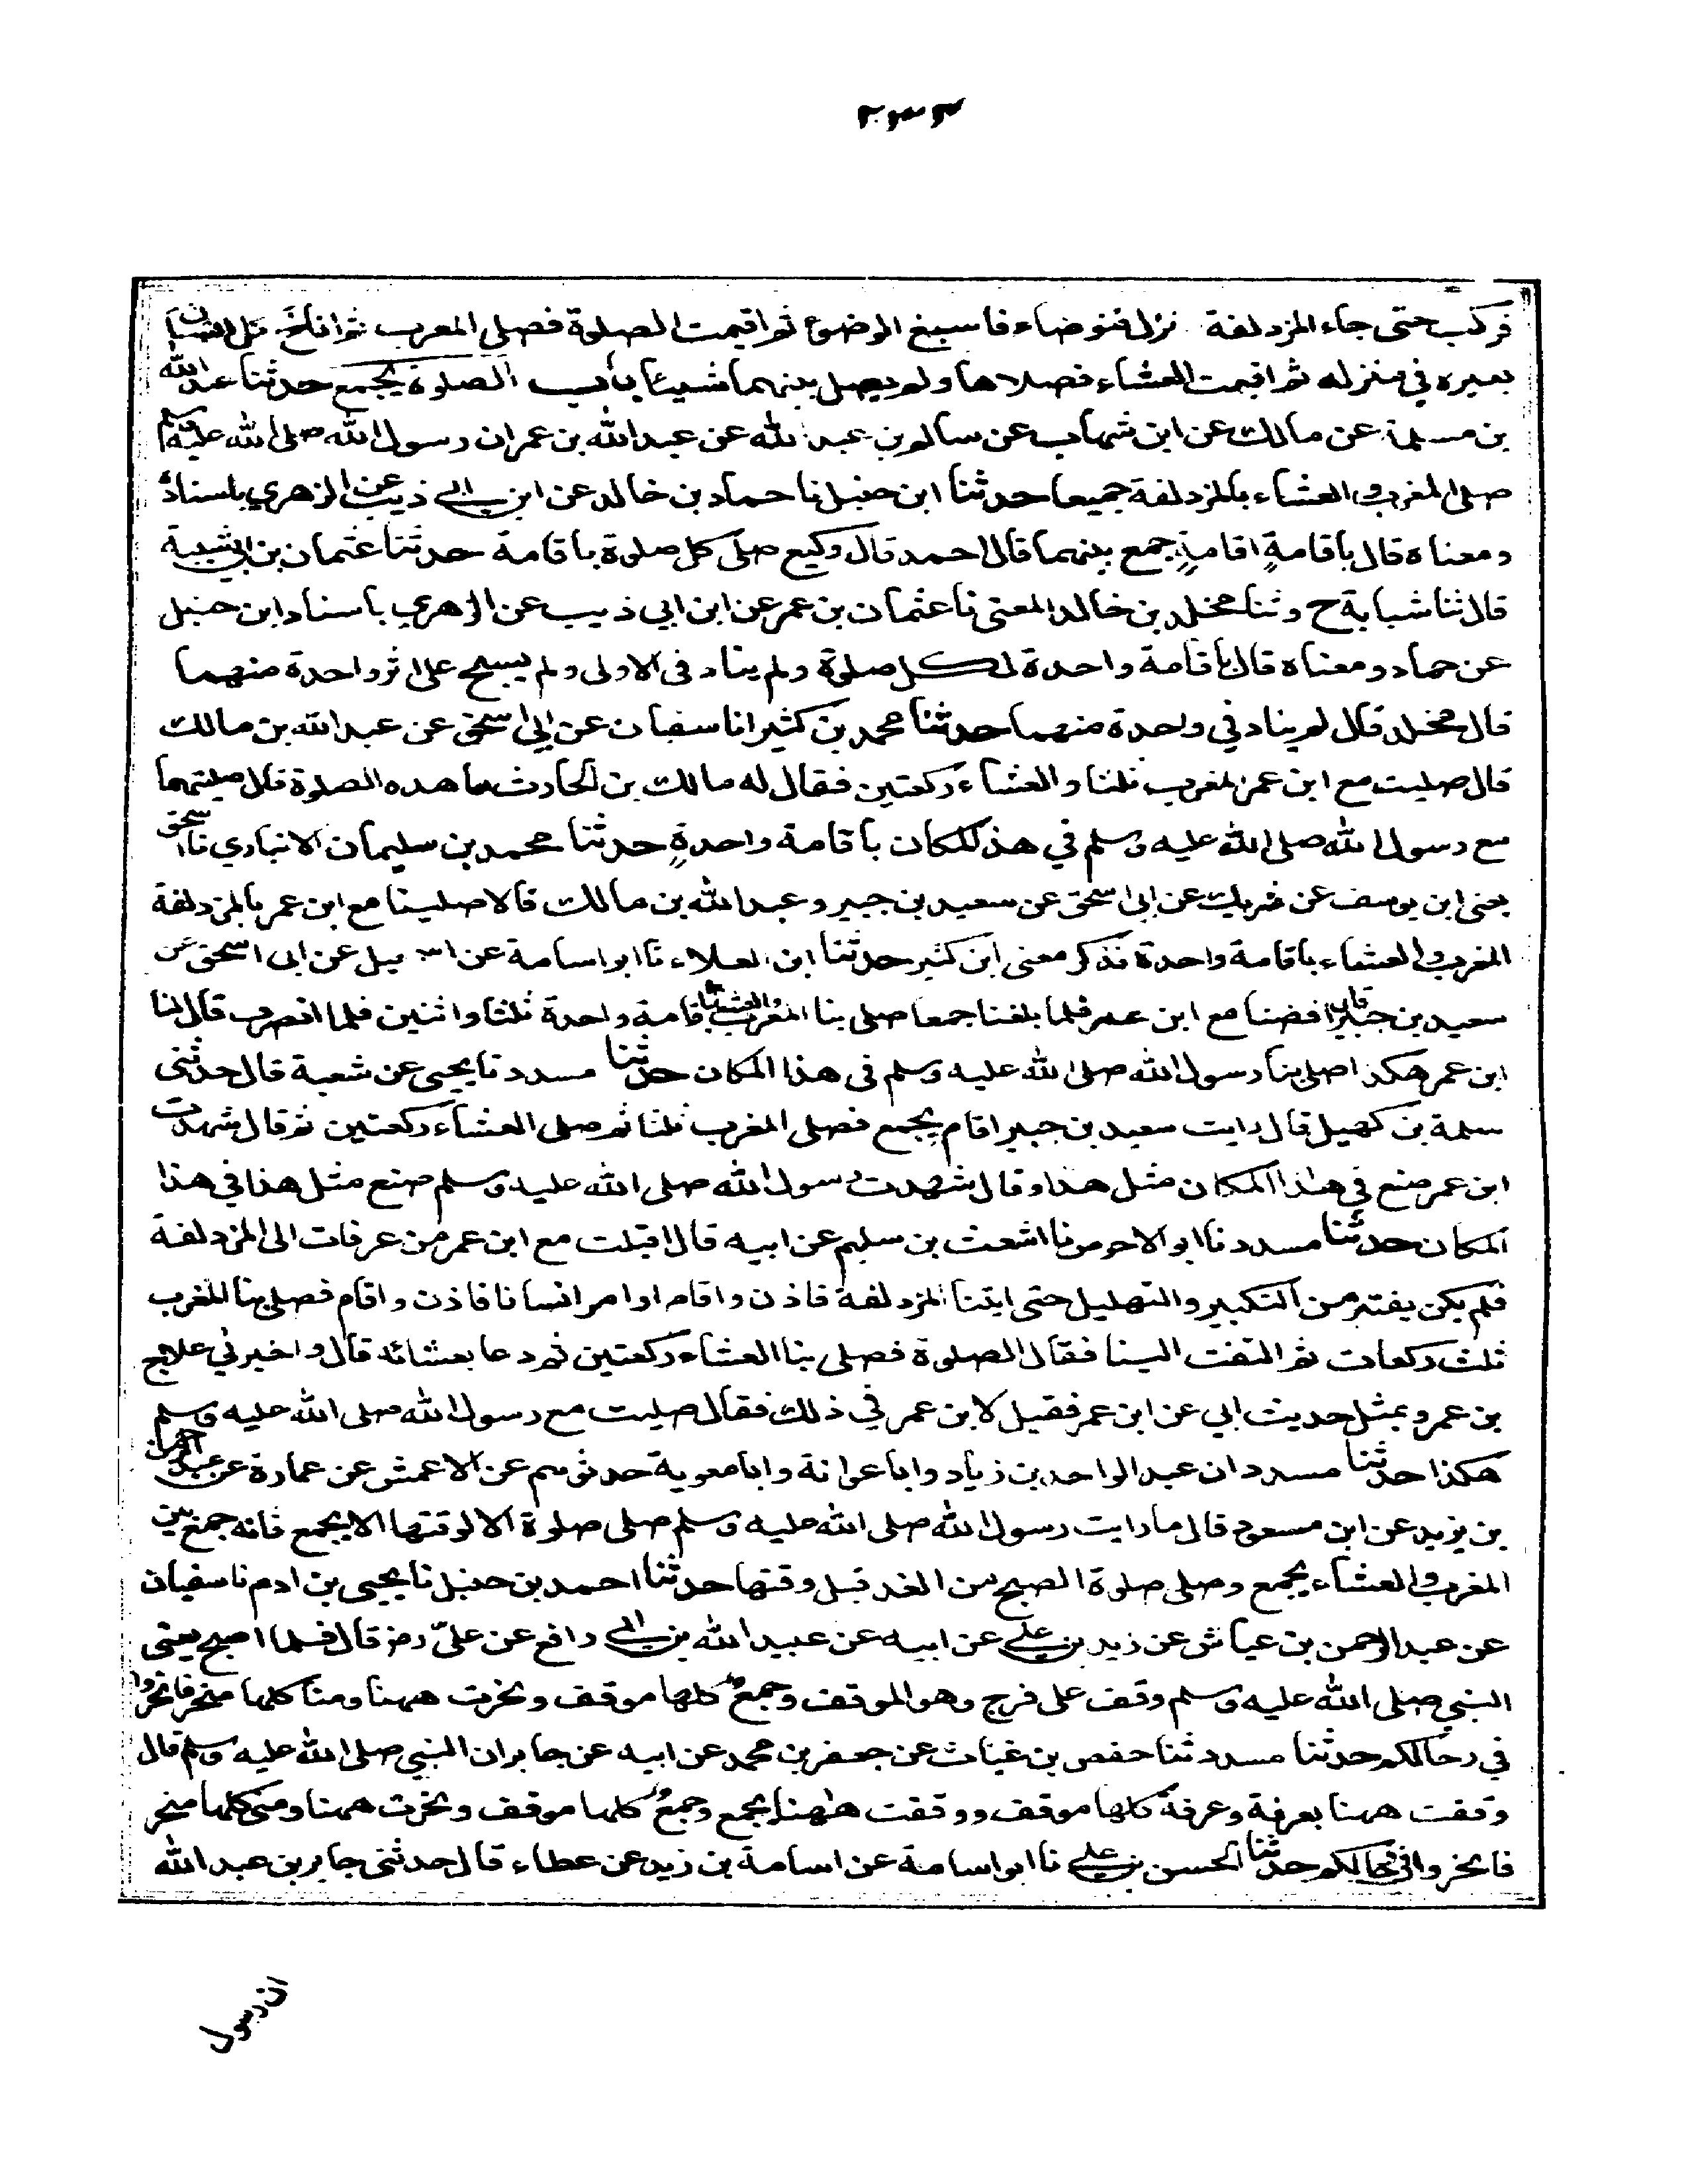 فركب حتى جاء المزدلفة نزل فتوضاء فاسبغ الوضوء ثم اقيمت الصلوة فصلى المغرب ثم اناخ كل انسان
بعيره في منزله ثم اقيمت العشاء فصلاها ولم يصل بينهما شيئا باب الصلوة بجمع حدثنا عبد الله
بن مسلمة عن مالك عن ابن شهاب عن سالم بن عبد الله عن عبد الله بن عمر ان رسول الله صلى الله عليه وسلم
صلى المغرب والعشاء بالمزدلفة جميعا حدثنا ابن حنبل نا حماد بن خالد عن ابن ابي ذيب عن الزهري باسناده
ومعناه قال باقامةٍ اقامةٍ جمع بينهما قال احمد قال وكيع صلى كل صلوة باقامة حدثنا عثمان بن ابي شيبة
قال ثنا شبابة ح وثنا مخلد بن خالد المعنى نا عثمان بن عمر عن ابن ابي ذيب عن الزهري باسناد ابن حنبل
عن حماد ومعناه قال باقامة واحدة لكل صلوة ولم يناد في الاولى ولم يسبح على اثر واحدة منهما
قال مخلد قال لم يناد في واحدة منهما حدثنا محمد بن كثير انا سفيان عن ابي اسحق عن عبد الله بن مالك
قال صليت مع ابن عمر المغرب ثلثا والعشاء ركعتين فقال له مالك بن الحارث ما هذه الصلوة قال صليتهما
مع رسول الله صلى الله عليه وسلم في هذا المكان باقامة واحدةٍ حدثنا محمد بن سليمان الانباري نا اسحق
يعنى ابن يوسف عن شريك عن ابي اسحق عن سعيد بن جبير وعبد الله بن مالك قالا صلينا مع ابن عمر بالمزدلفة
المغرب والعشاء باقامة واحدة فذكر معنى ابن كثير حدثنا ابن العلاء نا ابو اسامة عن اسـ ـيل عن ابى اسحق عن
سعيد بن جبير قال افضنا مع ابن عمر فلما بلغنا جمعا صلى بنا المغرب والعشاء باقامة واحدة ثلثا واثنين فلما انصرف قال لنا
ابن عمر هكذا صلى بنا رسول الله صلى الله عليه وسلم في هذا المكان حدثنا مسدد نا يحيى عن شعبة قال حدثنى
سلمة بن كهيل قال رايت سعيد بن جبير اقام بجمع فصلى المغرب ثلثا ثم صلى العشاء ركعتين ثم قال شهدت
ابن عمر صنع في هذا المكان مثل هذا وقال شهدت رسول الله صلى الله عليه وسلم صنع مثل هذا في هذا
المكان حدثنا مسدد نا ابو الاحوص نا اشعث بن سليم عن ابيه قال اقبلت مع ابن عمر من عرفات الى المزدلفة
فلم يكن يفتر من التكبير والتهليل حتى اتينا المزدلفة فاذن واقام او امر انسانا فاذن واقام فصلى بنا المغرب
ثلث ركعات ثم التفت الينا فقال الصلوة فصلى بنا العشاء ركعتين ثم دعا بعشائه قال واخبرني علاج
بن عمرو بمثل حديث ابي عن ابن عمر فقيل لابن عمر في ذلك فقال صليت مع رسول الله صلى الله عليه وسلم
هكذا حدثنا مسدد ان عبد الواحد بن زياد وابا عوانة وابا معوية حدثوهم عن الاعمش عن عمارة عن عبد الرحمن
بن يزيد عن ابن مسعود قال ما رايت رسول الله صلى الله عليه وسلم صلى صلوة الا لوقتها الا بجمع فانه جمع بين
المغرب والعشاء بجمع وصلى صلوة الصبح من الغد قبل وقتها حدثنا احمد بن حنبل نا يحيى بن ادم نا سفيان
عن عبد الرحمن بن عياش عن زيد بن علي عن ابيه عن عبيد الله بن ابي رافع عن عليّ رضـ قال فلما اصبح يعنى
النبي صلى الله عليه وسلم وقف على قزح وهو الموقف وجمعٌ كلها موقف ونحرت ههنا ومنا كلها منحر فانحروا
في رحالكم حدثنا مسدد ثنا حفص بن غياث عن جعفر بن محمد عن ابيه عن جابر ان النبي صلى الله عليه وسلم قال
وقفت ههنا بعرفة وعرفة كلها موقف ووقفت ههنا بجمع وجمعٌ كلها موقف ونحرت ههنا ومنى كلها منحر
فانحروا في رحالكم حدثنا الحسن بن علي نا ابو اسامة عن اسامة بن زيد عن عطاء قال حدثنى جابر بن عبد الله
ان رسول